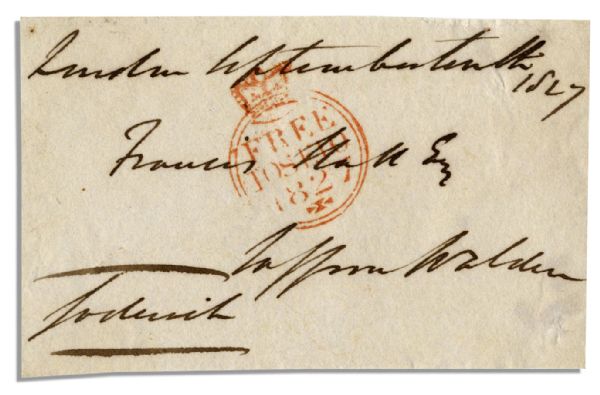 London September tenth
1827
Francis Hall Esq
FREE
10SE10
1827
Saffron Walden
Goderich